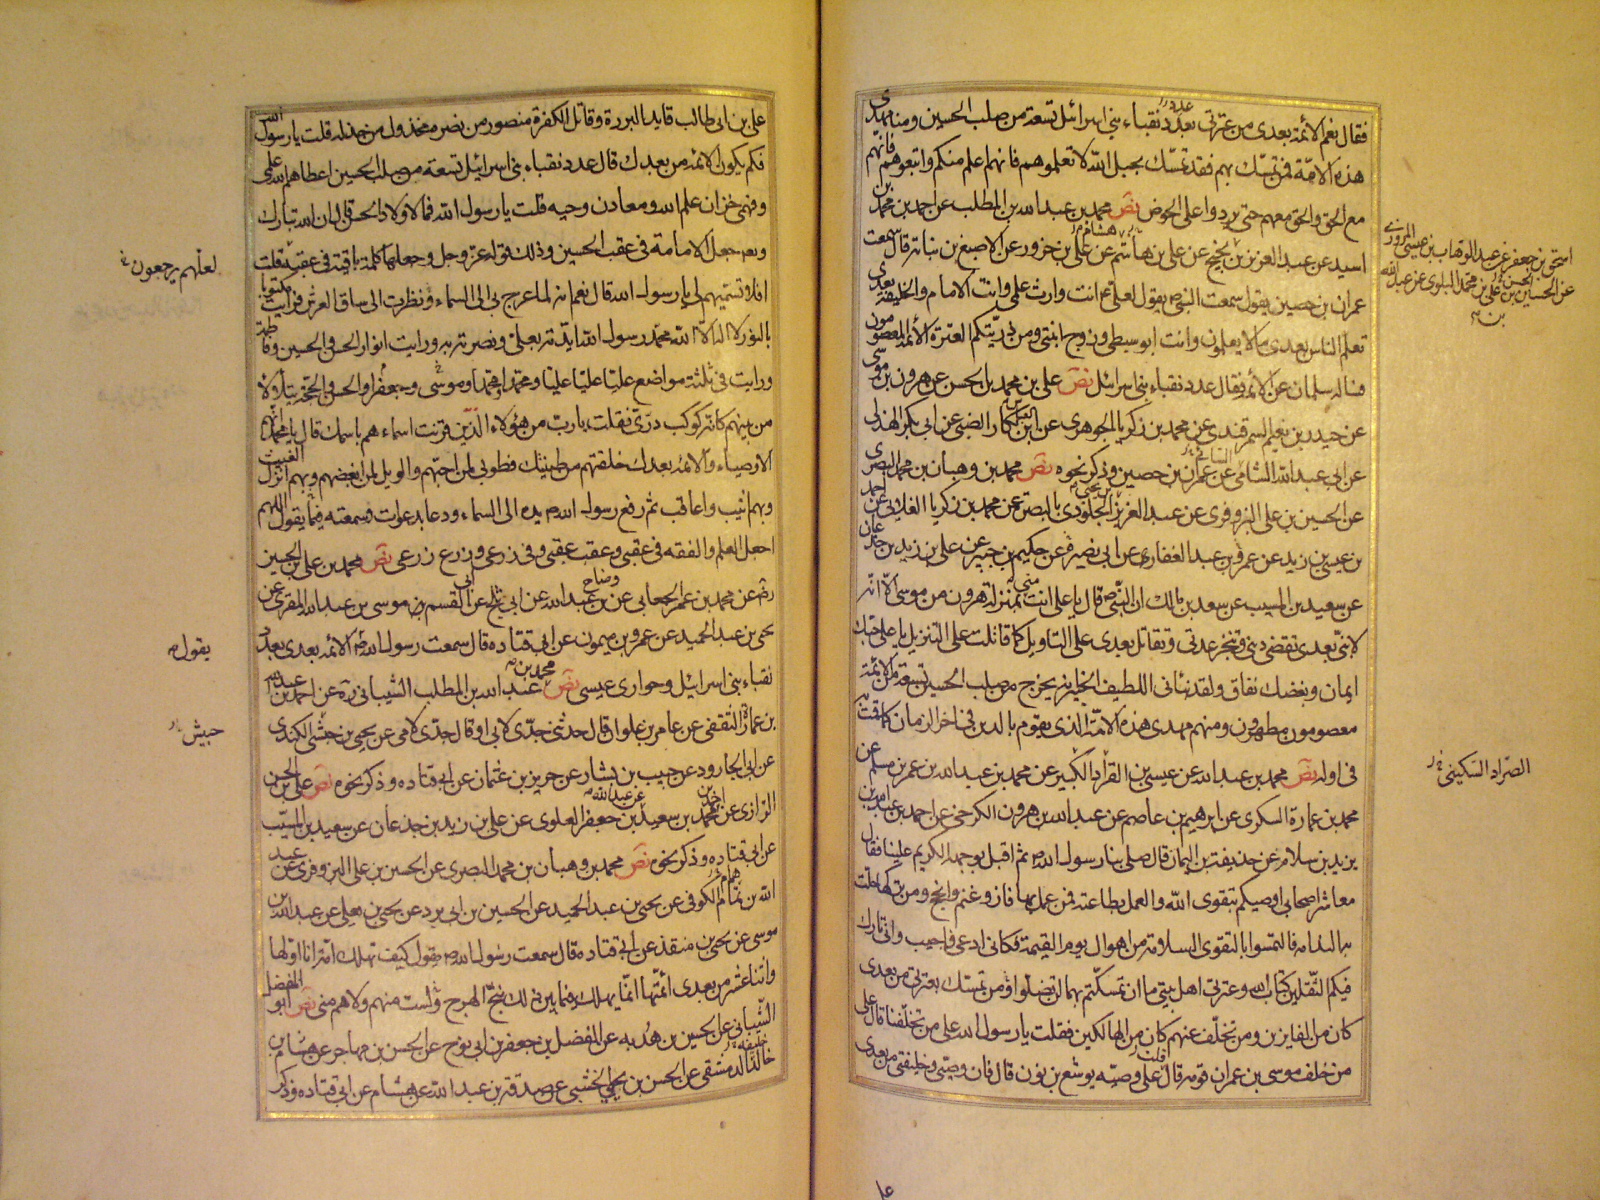 فقال نعم الائمة بعدى من عترتى بعدد نقباء بنى اسرائيل تسعة من صلب الحسين ومنا مهدى
هذه الامة فمن تمسك بهم فقد تمسك بحبل الله لا تعلموهم فانهم اعلم منكم واتبعوهم فانهم
مع الحق والحق معهم حتى يردوا على الحوض نص محمد بن عبد الله بن المطلب عن احمد بن محمد بن
اسيد عن عبد العزيز بن عن على بن هاشم عن على بن حزور عن الاصبغ بن نباته قال سمعت
عمران بن حصين يقول سمعت النبى يقول لعلى انت وارث علمى وانت الامام والخليفة بعدى
تعلم الناس بعدى ما لا يعلمون وانت ابو سبطى وزوج ابنتى ومن ذريتكم العترة الائمة المعصومون
فساله سلمان عن الائمة فقال عدد نقباء بنى اسرائيل نص على بن محمد بن الحسن عن هرون بن موسى
عن حيدر بن نعيم السمرقندى عن محمد بن زكريا الجوهرى عن بكار الضبى عن ابى بكر الهذلى
عن ابى عبد الله الشامى عن عمران بن حصين وذكر نحوه نص محمد بن وهبان بن محمد البصرى
عن الحسين بن على البزوفرى عن عبد العزيز الجلودى بالبصرة عن محمد بن زكريا الغلابى عن احمد
بن عيسى بن زيد عن عمرو بن عبد الغفار عن ابى نصيرة عن حكيم بن جبير عن على بن زيد بن جدعان
عن سعيد بن المسيب عن سعد بن مالك ان النبى قال يا على انت منى بمنزلة هرون من موسى الا انه
لا نبى بعدى تقضى دينى وتنجز عدتى وتقاتل بعدى على التاويل كما قاتلت على التنزيل يا على حبك
ايمان وبغضك نفاق ولقد نبانى اللطيف الخبير انه يخرج من صلب الحسين تسعة من الائمة
معصومون مطهرون ومنهم مهدى هذه الامة الذى يقوم بالدين فى اخر الزمان كما قمت
فى اوله نص محمد بن عبد الله عن عيسى بن القراد الكبير عن محمد بن عبد الله بن عمر بن مسلم عن
محمد بن عمارة السكرى عن ابرهيم بن عاصم عن عبد الله بن هرون الكرخى عن احمد بن عبد الله بن
يزيد بن سلامة عن حذيفة بن اليمان قال صلى بنا رسول الله ثم اقبل بوجهه الكريم علينا فقال
معاشر اصحابى اوصيكم بتقوى الله والعمل بطاعته فمن عمل بها فاز وغنم وانجح ومن تركها حلت
به الندامة فالتمسوا بالتقوى السلامة من اهوال يوم القيمة فكانى ادعى فاجيب وانى تارك
فيكم الثقلين كتاب الله وعترتى اهل بيتى ما ان تمسكتم بهما لن تضلوا ومن تمسك بعترتى من بعدى
كان من الفايزين ومن تخلف عنهم كان من الهالكين فقلت يا رسول الله على من تخلفنا قال على
من خلف موسى بن عمران قومه قلت على وصيه يوشع بن نون قال فان وصيى وخليفتى من بعدى
اسحق بن جعفر عن عبد الوهاب بن عيسى المروزى
عن الحسين بن على بن محمد البلوى عن عبد الله
بن
الصراد السكينى
على بن ابى طالب قايد البررة وقاتل الكفرة منصور من نصره مخذول من خذله قلت يا رسول الله
فكم يكون الائمة من بعدك قال عدد نقباء بنى اسرائيل تسعة من صلب الحسين اعطاهم الله علمى
وفهمى خزان علم الله ومعادن وحيه قلت يا رسول الله فما لاولاد الحسن قال ان الله تبارك
وتعالى جعل الامامة فى عقب الحسين وذلك قوله عز وجل وجعلها كلمة باقية فى عقبه فقلت
افلا تسميهم لى يا رسول الله قال نعم انه لما عرج بى الى السماء ونظرت الى ساق العرش فرايت مكتوبا
بالنور لا اله الا الله محمد رسول الله ايدته بعلى ونصرته به ورايت انوار الحسن والحسين وفاطمة
ورايت فى ثلثة مواضع عليا عليا عليا ومحمدا ومحمدا وموسى وجعفرا والحسن والحجة يتلالا
من بينهم كانه كوكب درى فقلت يا رب من هؤلاء الذين قرنت اسماءهم باسمك قال يا محمد انهم
الاوصياء والائمة بعدك خلقتهم من طينتك فطوبى لمن احبهم والويل لمن ابغضهم وبهم انزل الغيث
وبهم اثيب واعاقب ثم رفع رسول الله يده الى السماء ودعا بدعوات فسمعته فيما يقول اللهم
اجعل العلم والفقه فى عقبى وعقب عقبى وفى زرعى وزرع زرعى نص محمد بن على بن الحسين
عن محمد بن عمر الجعابى عن بن عبد الله عن ابى القسم موسى بن عبد الله المقرى عن
يحيى بن عبد الحميد عن عمرو بن ميمون عن ابى قتاده قال سمعت رسول الله الائمة بعدى بعدد
نقباء بنى اسرائيل وحوارى عيسى نص محمد بن عبد الله بن المطلب الشيبانى عن احمد بن عبد الله
بن عمار الثقفى عن عامر بن علوان قال حدثنى جدى لابى او قال جدى لامى عن يحيى بن حبشى الكندى
عن ابى الجارود عن حبيب بن بشار عن حريز بن عثمان عن ابى قتاده وذكر نحوه نص على بن الحسن
الرازى عن محمد بن سعيد بن جعفر العلوى عن على بن زيد بن جدعان عن سعيد بن المسيب
عن ابى قتاده وذكر نحوه نص محمد بن وهبان بن محمد البصرى عن الحسين بن على البزوفرى عن عبد
الله بن تمام الكوفى عن يحيى بن عبد الحميد عن الحسين بن ابى برد عن يحيى بن يعلى عن عبد الله بن
موسى عن يحيى بن منقذ عن ابى قتاده قال سمعت رسول الله يقول كيف تهلك امة انا اولها
واثنا عشر من بعدى ائمتها انما يهلك فيما بين ذلك ثبج الهرج ولست منهم ولا هم منى نص ابو المفضل
الشيبانى عن الحسين بن هدبه عن المفضل بن جعفر بن ابى نوح عن الحسن بن مهاجر عن هشام بن
خالد الدمشقى عن الحسن بن يحيى الخشنى عن صدقة بن عبد الله عن هشام عن ابى قتاده وذكر
لعلهم يرجعون
يقول
حبيش